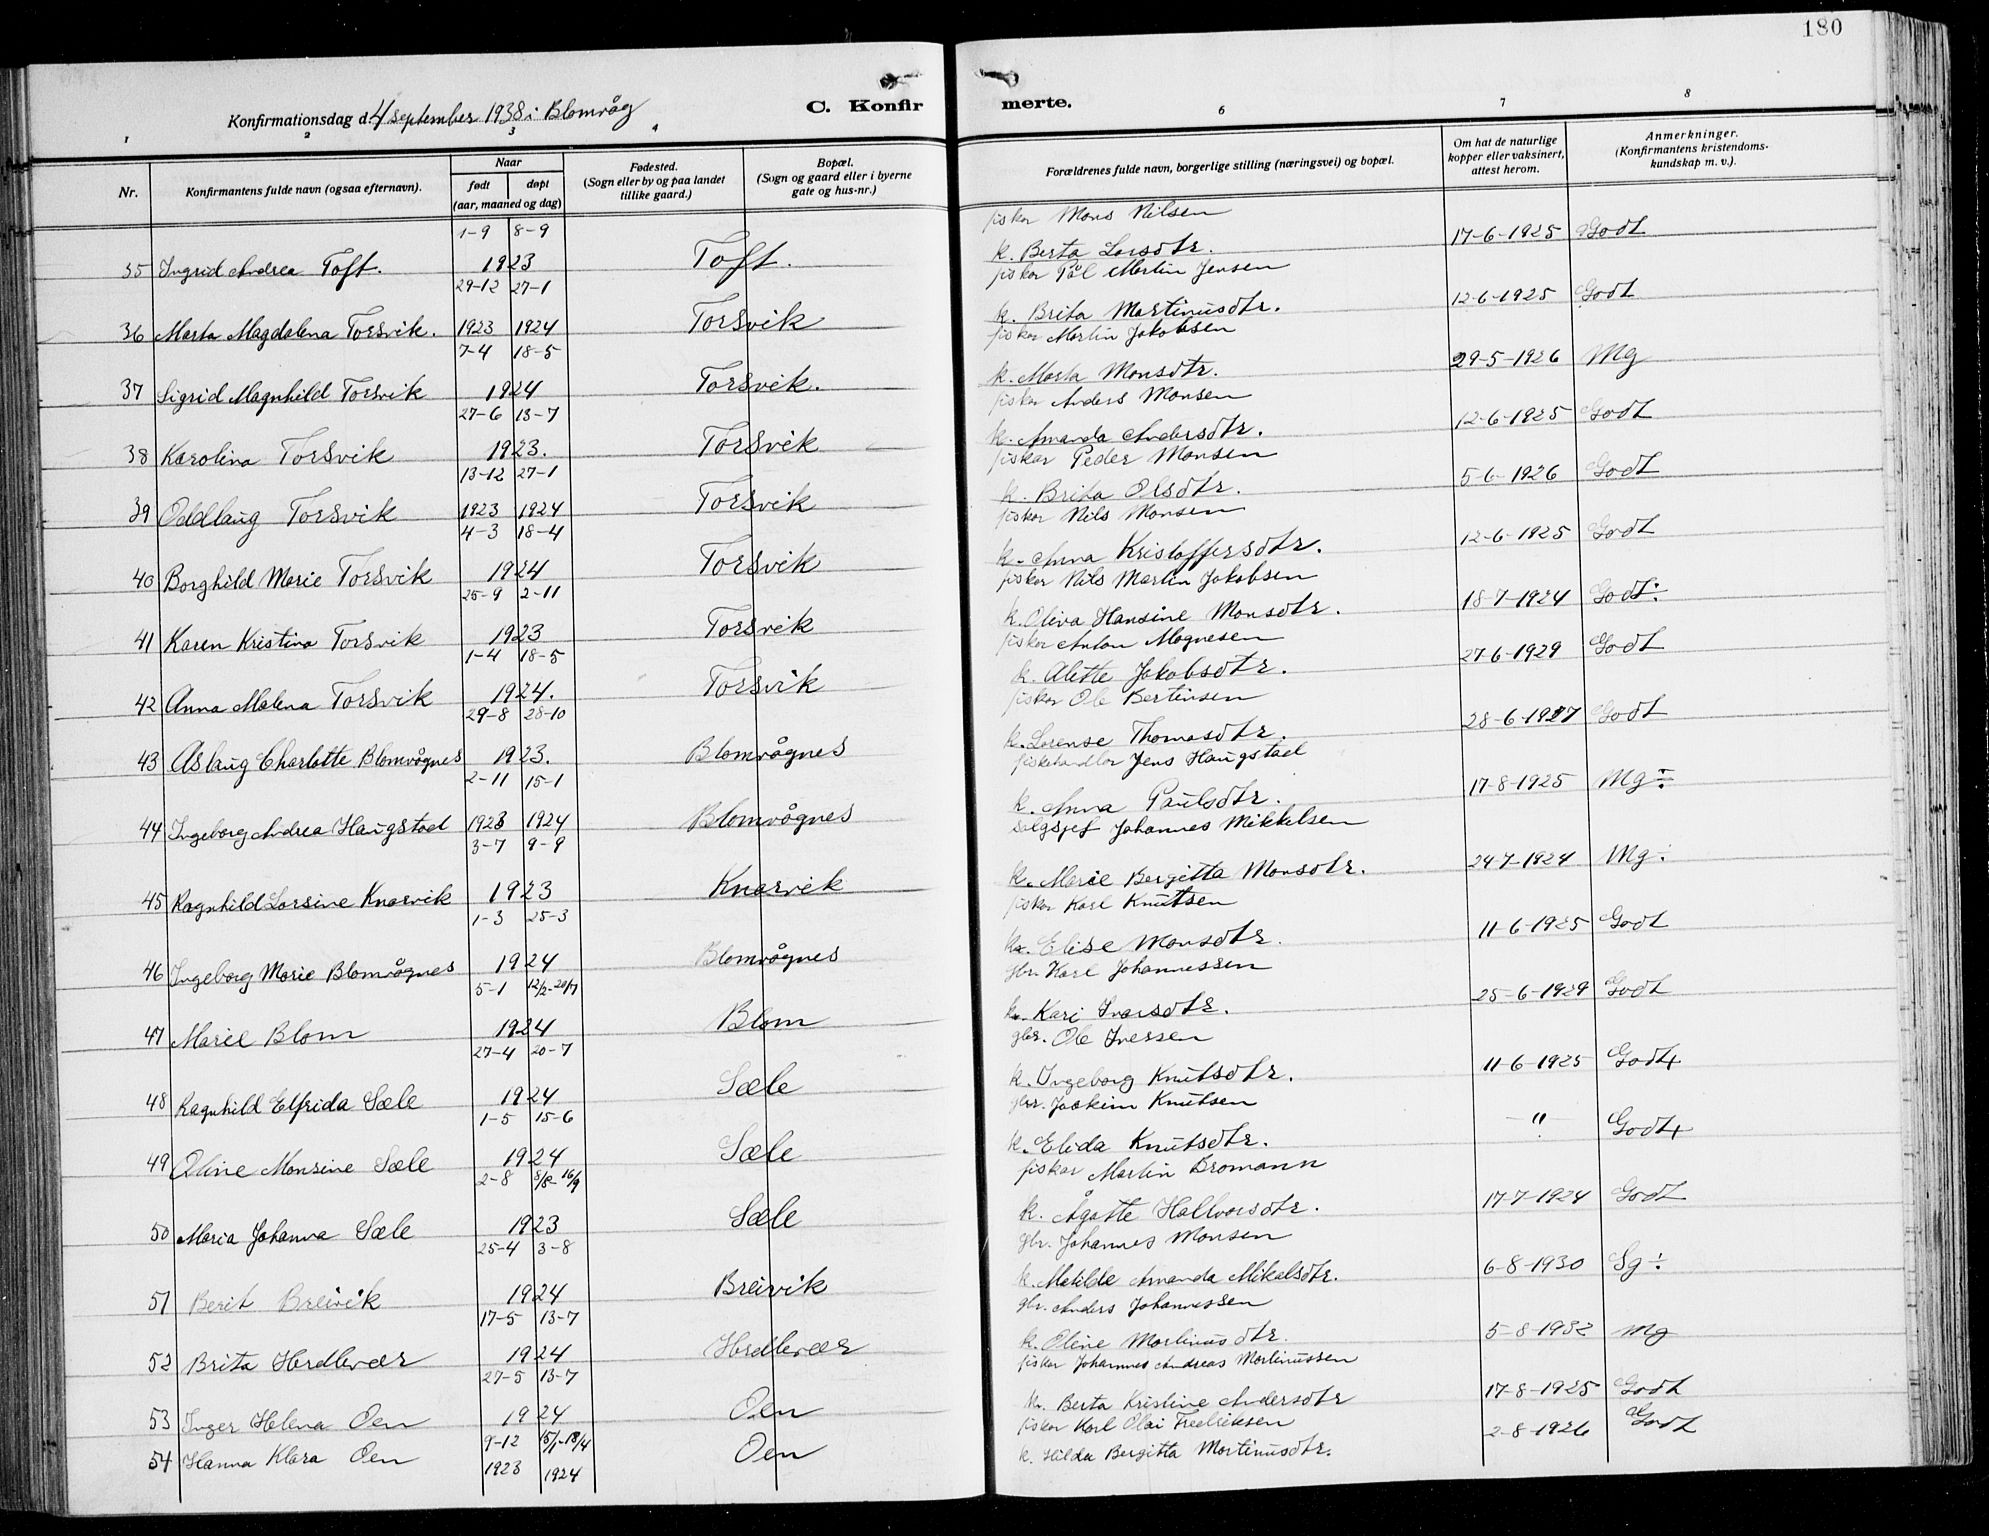 180
Konfirmationsdag d. 4 september 1938 i Blomvåg
C. Konfir merte.
1 2 3 4 6 7 8
Nr.
Konfirmantens fulde navn (ogsaa efternavn).
Naar
født døpt
(aar, maaned og dag)
Fødested.
(Sogn eller by og paa landet
tillike gaard.)
Bopæl.
(Sogn og gaard eller i byerne
gate og hus-nr.)
Forældrenes fulde navn, borgerlige stilling (næringsvei) og bopæl.
Om hat de naturlige
kopper eller vaksinert,
attest herom.
Anmerkninger.
(Konfirmantens kristendoms-
kundskap m. v.).
1-9 8-9 fiskar Mons Nilsen
35 Ingrid Andrea Toft. 1923 Toft. k. Berta Larsdtr. 17-6-1925 Godt
29-12 27-1 fiskar Pål Martin Jensen
36 Marta Magdalena Torsvik. 1923 1924 Torsvik k. Brita Martinusdtr. 12-6-1925 Godt
7-4 18-5 fiskar Martin Jakobsen
37 Sigrid Magnhild Torsvik 1924 Torsvik. k. Marta Monsdtr. 29-5-1926 Mg
27-6 13-7 fiskar Anders Monsen
38 Karolina Torsvik 1923. Torsvik k. Amanda Andersdtr. 12-6-1925 Godt
13-12 27-1 fiskar Peder Monsen
39 Oddlaug Torsvik 1923 1924 Torsvik k. Brita Olsdtr. 5-6-1926 Godt
4-3 18-4 fiskar Nils Monsen
40 Borghild Marie Torsvik 1924 Torsvik k. Anna Kristoffersdtr. 12-6-1925 Godt
25-9 2-11 fiskar Nils Martin Jakobsen
41 Karen Kristina Torsvik 1923 Torsvik k. Oliva Hansine Monsdtr. 18-7-1924 Godt÷
1-4 18-5 fiskar Anton Magnesen
42 Anna Malena Torsvik 1924. Torsvik k. Alette Jakobsdtr. 27-6-1929 Godt
29-8 28-10 fiskar Ole Bertinsen
43 Aslaug Charlotte Blomvågnes 1923. Blomvågnes k. Lorense Thomasdtr. 28-6-1927 Godt
2-11 15-1 fiskehandlar Jens Haugstad
44 Ingeborg Andrea Haugstad 1923 1924 Blomvågnes k. Anna Paulsdtr. 17-8-1925 Mg÷
3-7 9-9 salgsjef Johannes Mikkelsen
45 Ragnhild Larsine Knarvik 1923 Knarvik k. Marie Bergitta Monsdtr. 24-7-1924 Mg÷
1-3 25-3 fiskar Karl Knutsen
46 Ingeborg Marie Blomvågnes 1924 Blomvågnes k. Elise Monsdtr. 11-6-1925 Godt
5-1 12/2-20/7 gbr. Karl Johannessen
47 Marie Blom 1924 Blom k. Kari Ivarsdtr. 25-6-1929 Godt
27-4 20-7 gbr. Ole Iversen
48 Ragnhild Elfrida Sæle 1924 Sæle k. Ingeborg Knutsdtr. 11-6-1925 Godt+
1-5 15-6 gbr. Joakim Knutsen
49 Oline Monsine Sæle 1924 Sæle k. Elida Knutsdtr. — " — Godt+
2-8 8/8-16/9 fiskar Martin Bromann
50 Maria Johanna Sæle 1923 Sæle k. Ågatte Hallvorsdtr. 17-7-1924 Godt
25-4 3-8 gbr. Johannes Monsen
51 Berit Breivik 1924 Breivik k. Matilde Amanda Mikalsdtr. 6-8-1930 Sg÷
17-5 13-7 gbr. Anders Johannessen
52 Brita Herdlevær 1924 Herdlevær k. Oline Martinusdtr. 5-8-1932 Mg
27-5 13-7 fiskar Johannes Andreas Martinussen
53 Inger Helena Oen 1924 Oen k. Berta Kristine Andersdtr 17-8-1925 Godt
9-12 15/1-13/4 fiskar Karl Olai Fredriksen
54 Hanna Klara Oen 1923 1924 Oen k. Hilda Bergitta Martinusdtr. 2-8-1926 Godt